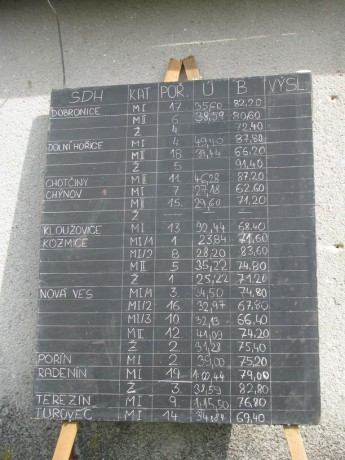 SDH KAT POŘ. Ú B VÝSL.
DOBRONICE MI 17 35,60 82,20
MII 6 38,59 80,60
Ž 4 72,40
DOLNÍ HOŘICE MI 4 49,40 87,80
MII 18 34,44 66,20
Ž 5 91,40
CHOTČINY MII 11 46,28 87,20
CHÝNOV MI 7 27,18 62,60
MII 15 29,60 71,20
Ž
KLOUŽOVICE MI 13 32,44 68,40
KOZMICE MI/1 1 23,84 71,60
MI/2 8 28,20 83,60
MII 5 35,22 74,80
Ž 1 25,22 71,20
NOVÁ VES MI/1 3 34,50 74,80
MI/2 16 32,97 67,80
MI/3 10 32,13 66,40
MII 12 41,09 74,20
Ž 2 31,28 75,40
POŘÍN MI 2 39,00 75,20
RADENÍN MI 19 1:00,44 79,00
Ž 3 31,59 82,80
TEREZÍN MI 9 1:15,50 76,80
TUROVEC MI 14 34,84 69,40